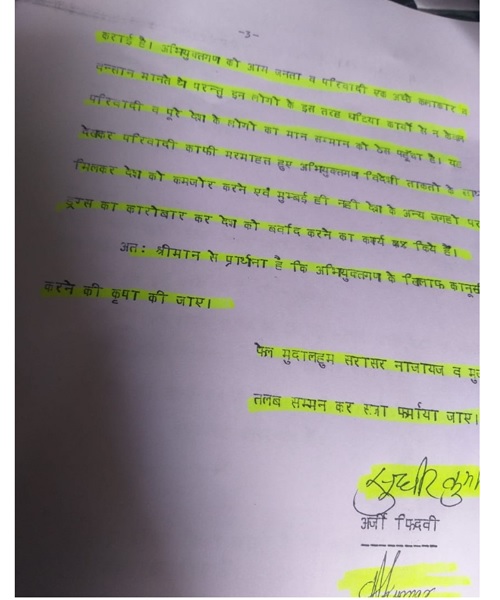 -3-
कराई है। अभियुक्तगण को आम जनता व परिवादी एक अच्छे कलाकार व
इन्सान मानते थे परन्तु इन लोगों के इस तरह घटिया कार्यो से न केवल
परिवादी व पूरे देश के लोगों का मान सम्मान को ठेस पहुँचा है। यह
देखकर परिवादी काफी मरमाहत हुए अभियुक्तगण विदेशी ताकतों के साथ
मिलकर देश को कमजोर करने एवं मुम्बई ही नही देश के अन्य जगहो पर
ड्रग्स का कारोबार कर देश को बर्बाद करने का कार्य किये है।
अतः श्रीमान से प्रार्थना है कि अभियुक्तगण के खिलाफ कानूनी
करने की कृपा की जाए।
फेल मुदालहुम सरासर नाजायज व
तलब सम्मन कर सजा फर्माया जाए।
सुधीर कुमा
अर्जी फिदवी